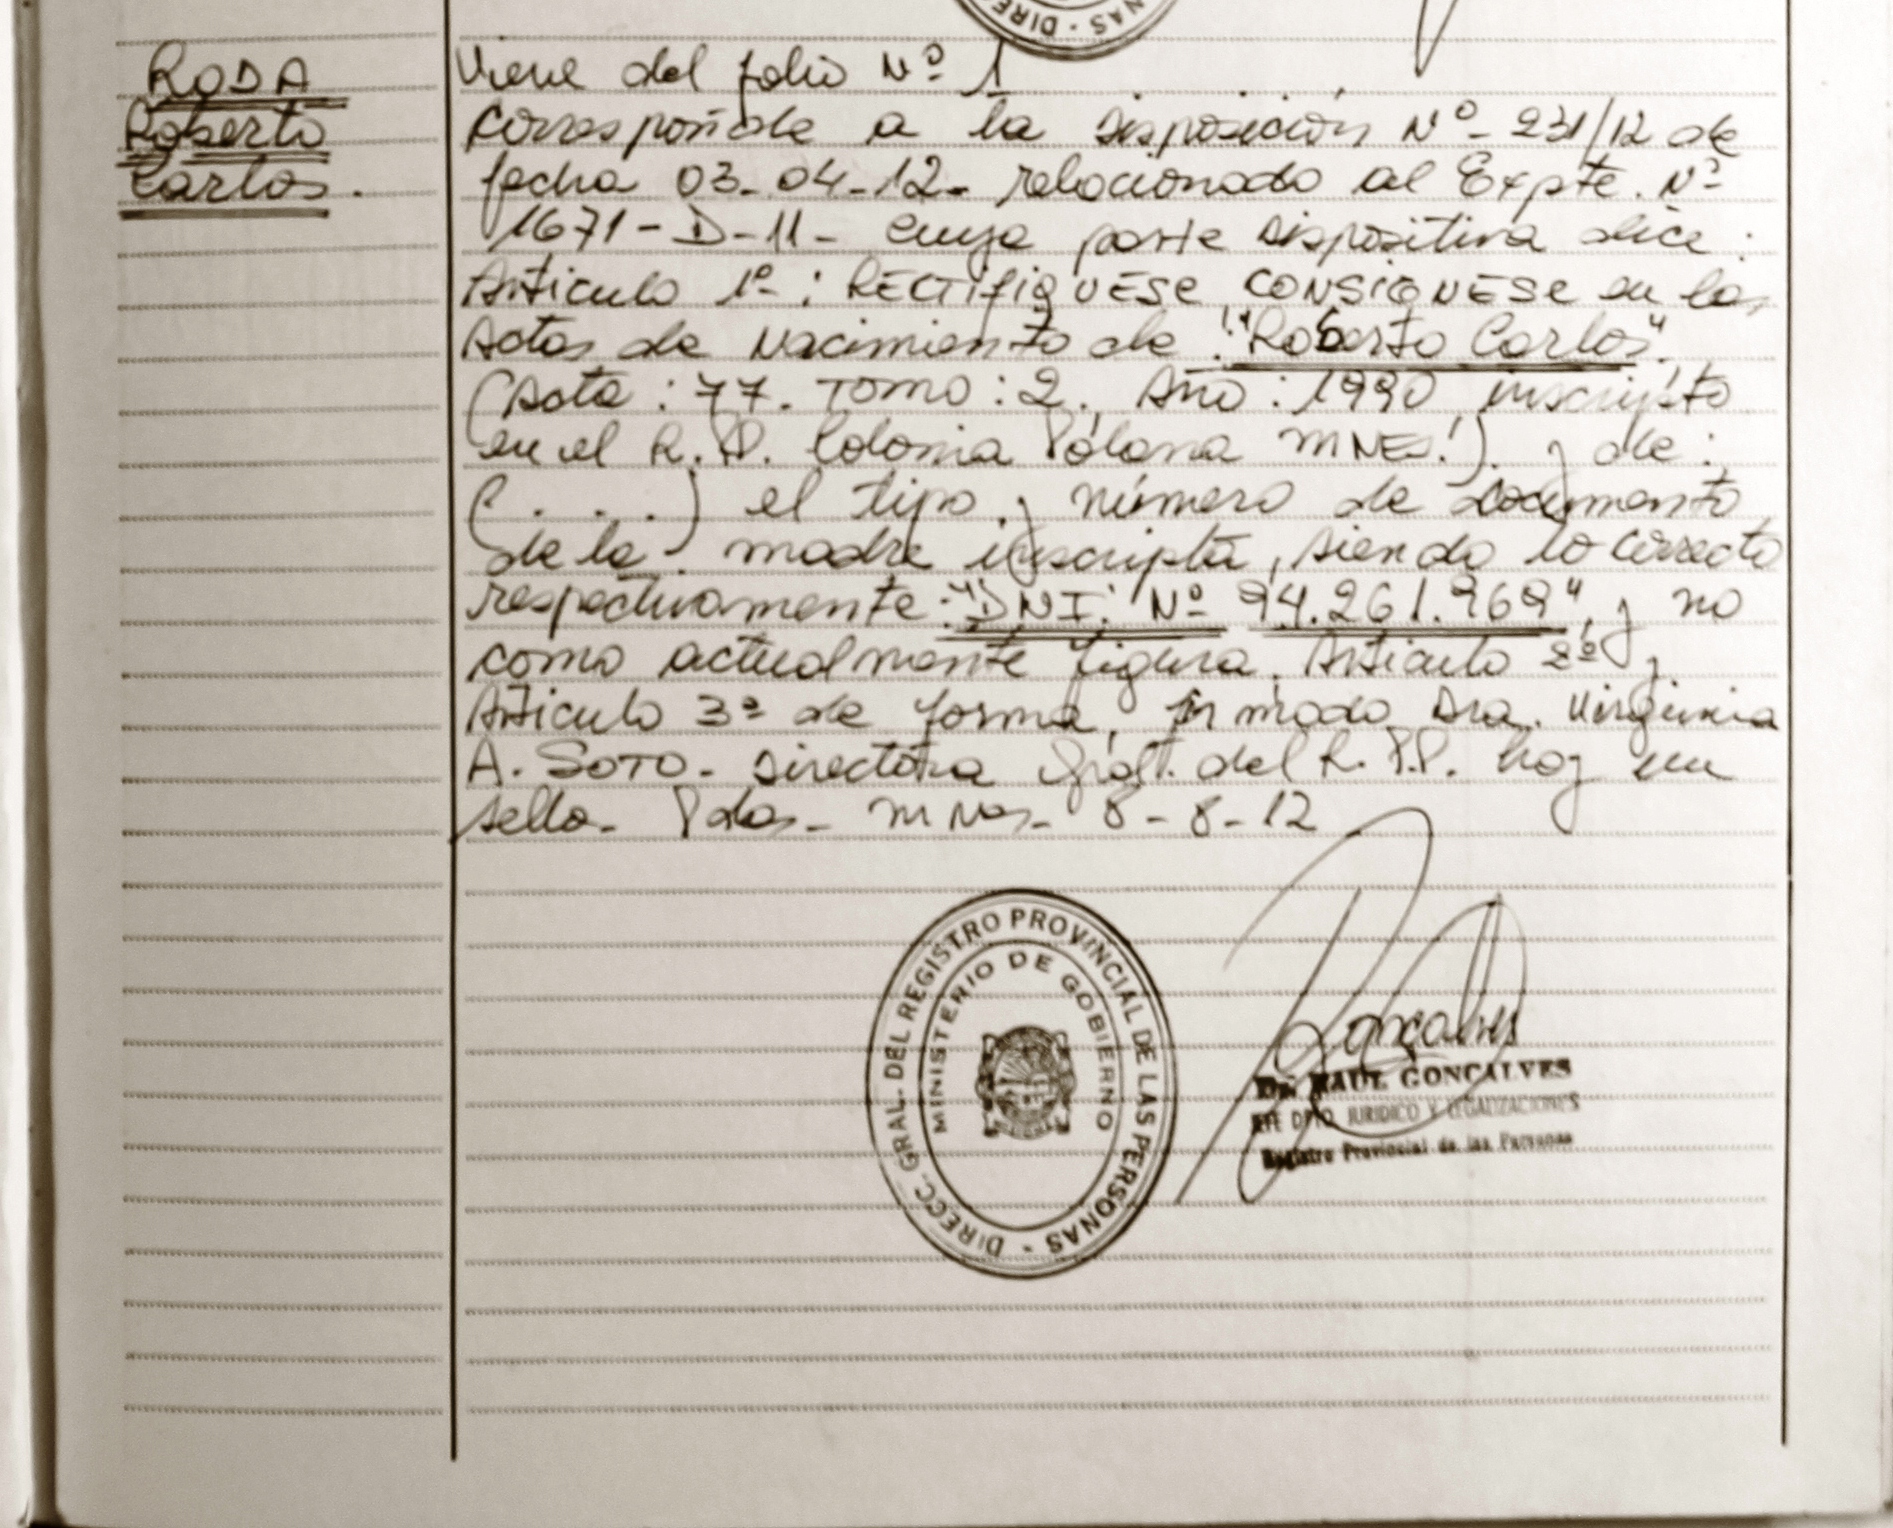 RODA
Roberto
Carlos.
Viene del folio Nº 1
Corresponde a la disposición Nº- 231/12 de
fecha 03-04-12- relacionado al Expte. Nº-
1671-D-11- cuya parte dispositiva dice:
Artículo 1º-: RECTIFIQUESE CONSIGNESE en las
Actas de Nacimiento de: "Roberto Carlos".
(Acta: 77. Tomo: 2. Año: 1990 inscripto
en el R.P. Colonia Polana MNES.). y de:
(. . .) el tipo y número de documento
de la madre inscripta, siendo lo correcto
respectivamente: "DNI. Nº 94.261.969" y no
como actualmente figura. Artículo 2º y
Artículo 3º de forma, firmado Dra. Virginia
A. SOTO. Directora Gral. del R.P.P. hay un
sello. Pdas- MNes- 8-8-12
DIRECC. GRAL. DEL REGISTRO PROVINCIAL DE LAS PERSONAS -
MINISTERIO DE GOBIERNO
Gonçalves
Dr. RAUL GONÇALVES
JEFE DPTO JURIDICO Y LEGALIZACIONES
Registro Provincial de las Personas